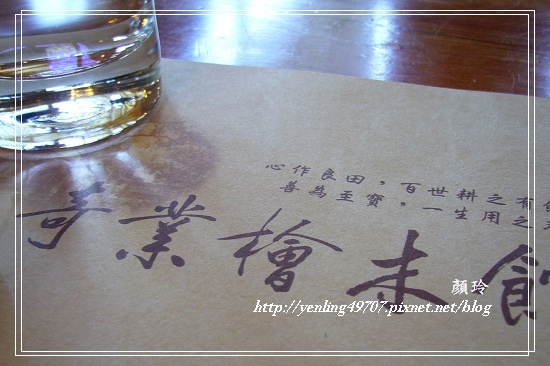 心作良田，百世耕之有
善為至寶，一生用之
奇業檜木館
顏玲
http://yenling49707.pixnet.net/blog